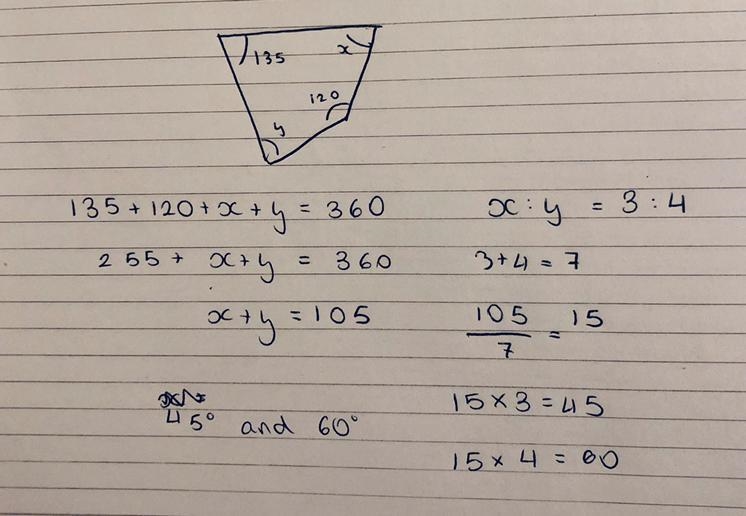 135
x
120
y
135 + 120 + x + y = 360
255 + x + y = 360
x + y = 105
45° and 60°
x : y = 3 : 4
3 + 4 = 7
105/7 = 15
15 × 3 = 45
15 × 4 = 60